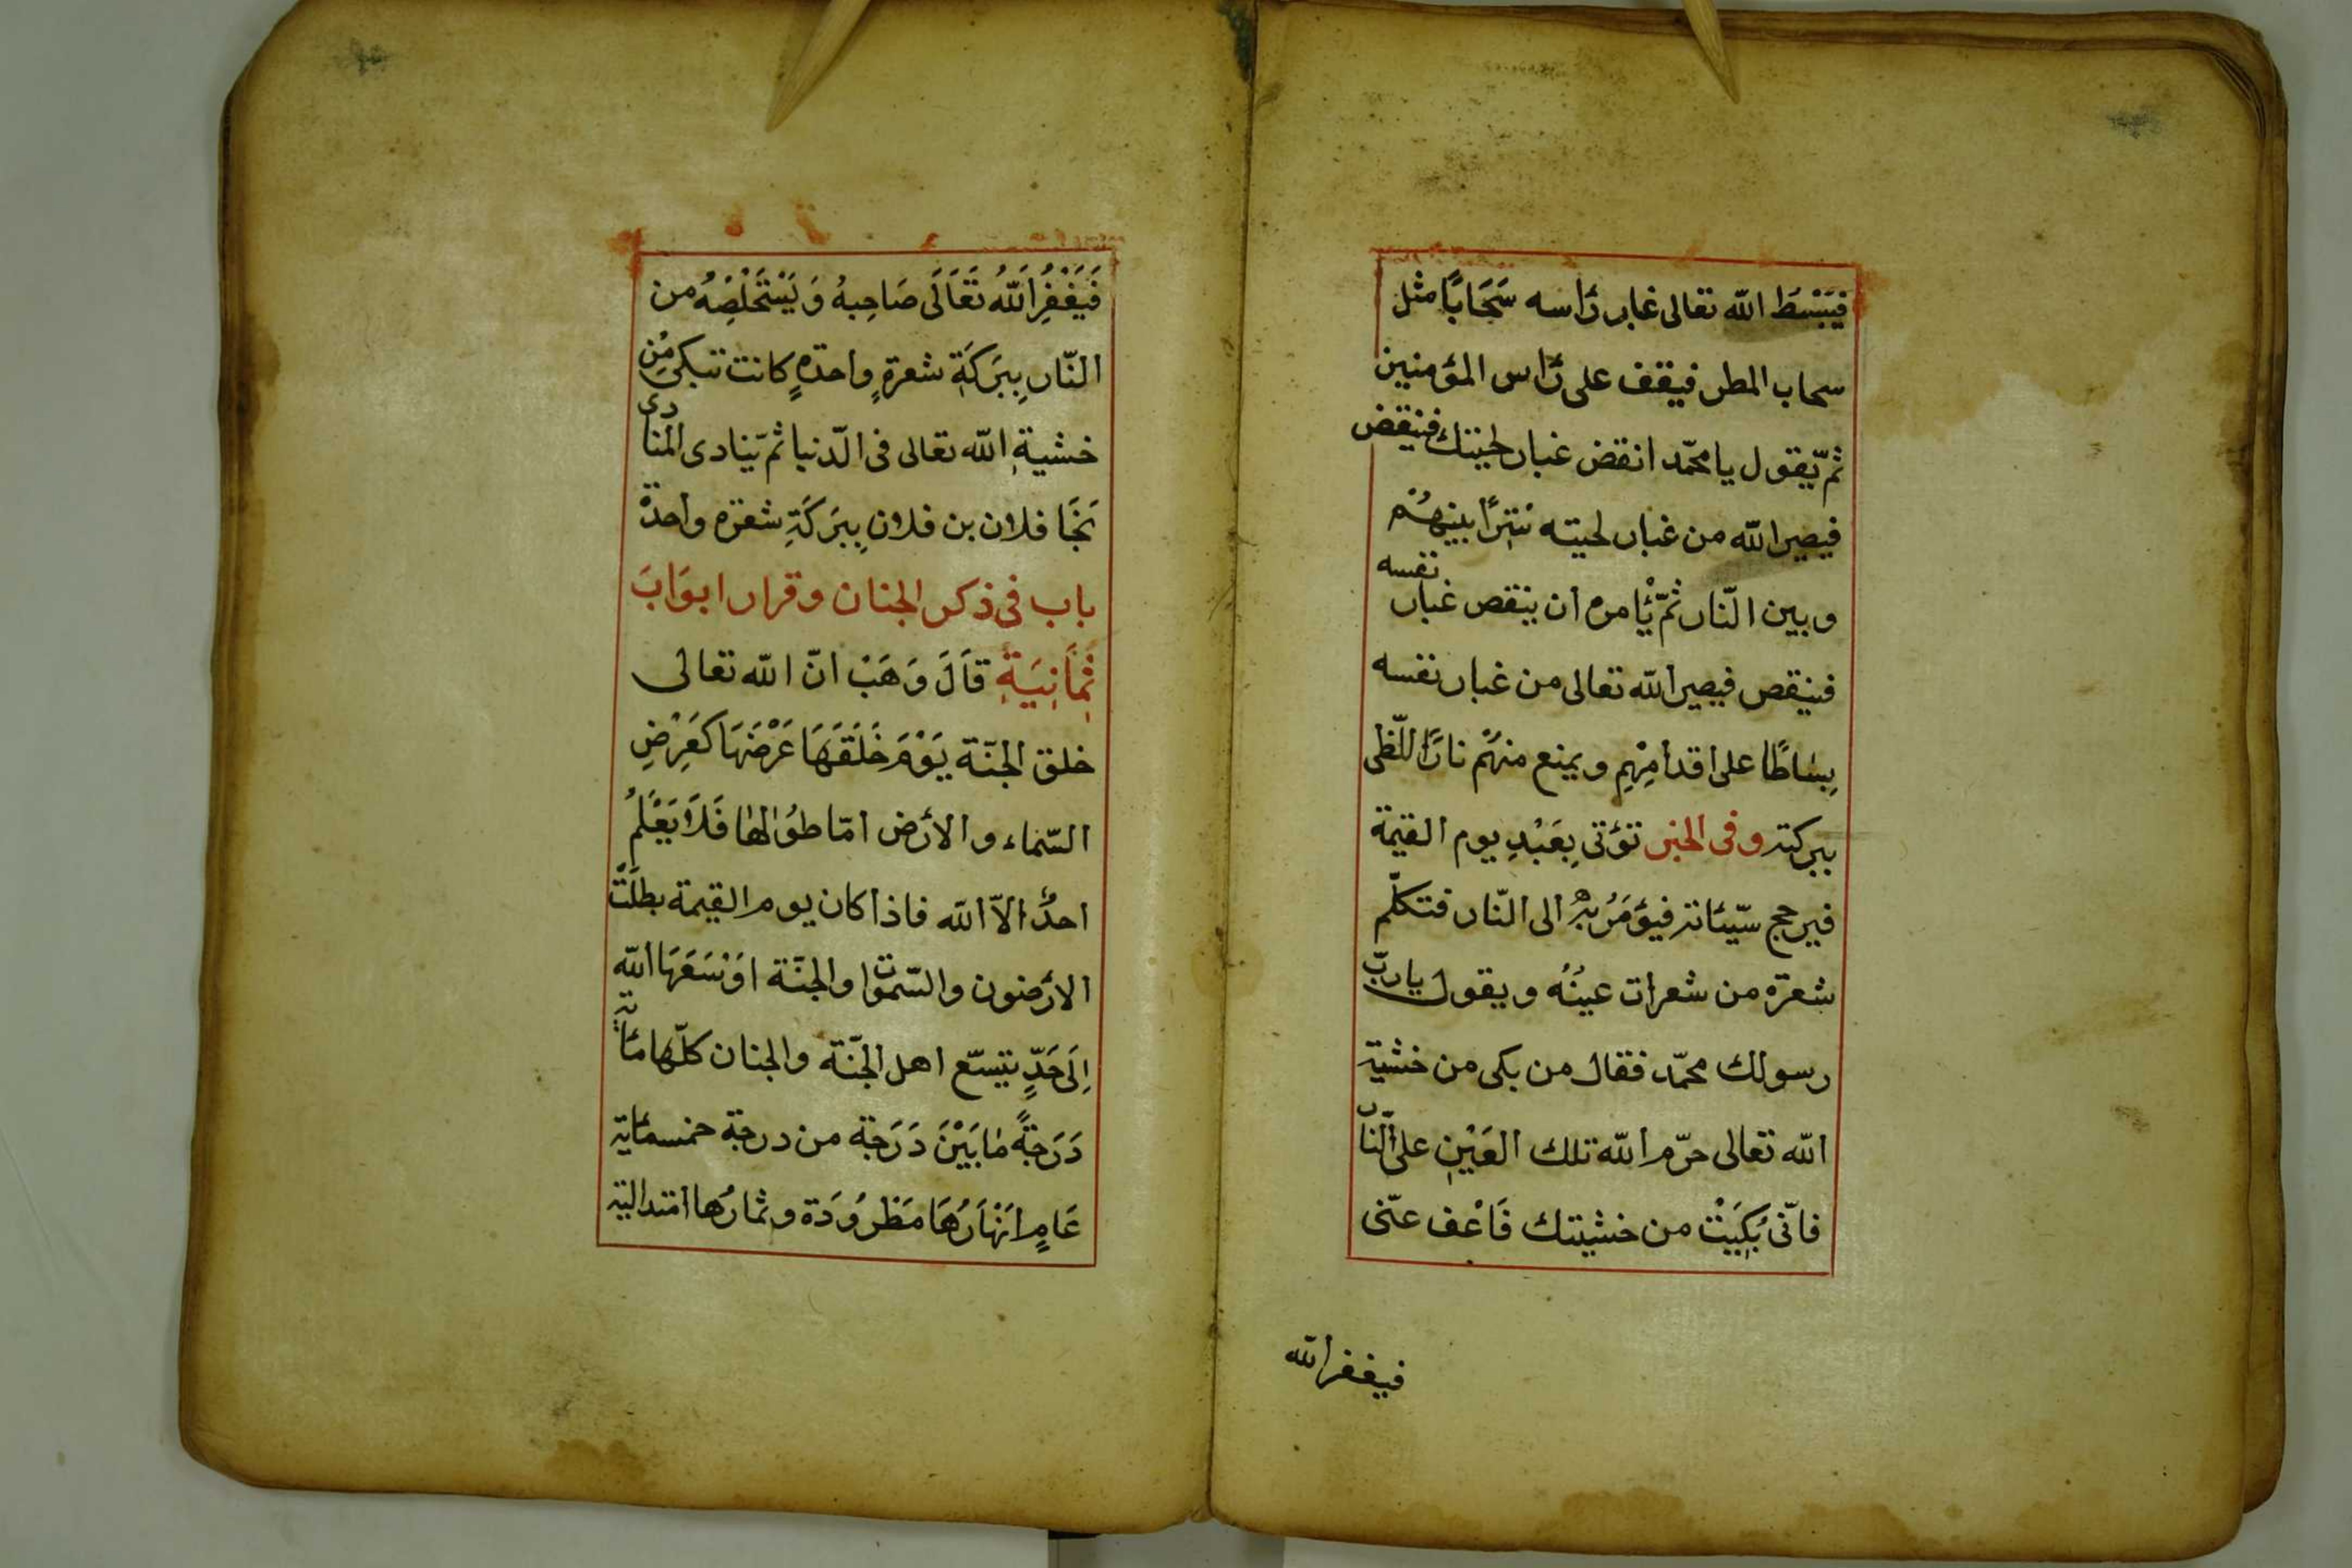 فَيَبْسُطَ الله تعالى غبار رَأسه سَحَابًا مثل
سحاب المطر فيقف على رَأس المؤمنين
ثمّ يّقول يا محمّد انقض غبار لحيتك فنيقض
فيصير الله من غبار لحيته سَترًا بينهُمْ
وبين النّار ثمّ يّأمره ان ينقص غبار نفسه
فينقص فيصير الله تعالى من غبار نفسه
بِسَاطًا على اقدامِهِمِ ويمنع منهُمْ نارًا للّظى
ببركته وفى الخبر تؤتى بِعَبْدِ يوم القيمة
فيرجح سّيئاته فيؤمَرُ بِهِ الى النّار فتكلّم
شعرة من شعرات عينُهُ ويقول يا ربّ
رسولك محمّد فقال من بكى من خشية
الله تعالى حرّم الله تلك العَيْنِ على النّار
فانّى بَكِيَتْ من خشيتك فَاعْفِ عنّى
فيغفر الله
فَيَغْفِرُ اَللهُ تَعَالَى صَاحِبهُ وَيَسْتَخْلِصُهُ من
النّار بِبَرَكَةِ شعرةٍ واحدةٍ كانت تبكى مِنْ
خشيةِ الله تعالى فى الّدنيا ثمّ يّنادى المنادى
نَجَا فلان بن فلانِ بِبَرَكَةِ شعرة واحدة
باب فى ذكر الجنان وقرار ابوَابَ
ثَمَانِيَةِ قَالَ وَهَبْ انّ الله تعالى
خلق الجنّة يَوْمَ خَلَقَهَا عَرْضَهَا كَعَرْضِ
السّماء والارض امّا طوُلها فَلَا يَعْلَمُ
احدٌ الاّ الله فاذا كان يوم القيمة بطلَتْ
الارَضون والسّموات والجنّة اوْسَعَهَا الله
اِلَى حَدٍّ يتسّع اهل الجنّة والجنان كلّها مائة
دَرَجةً مَا بَيْنَ دَرَجة من درجة خمسمائة
عَامٍ اَنْهَارُهَا مَطْرُودَة وثمارُها امتدالية